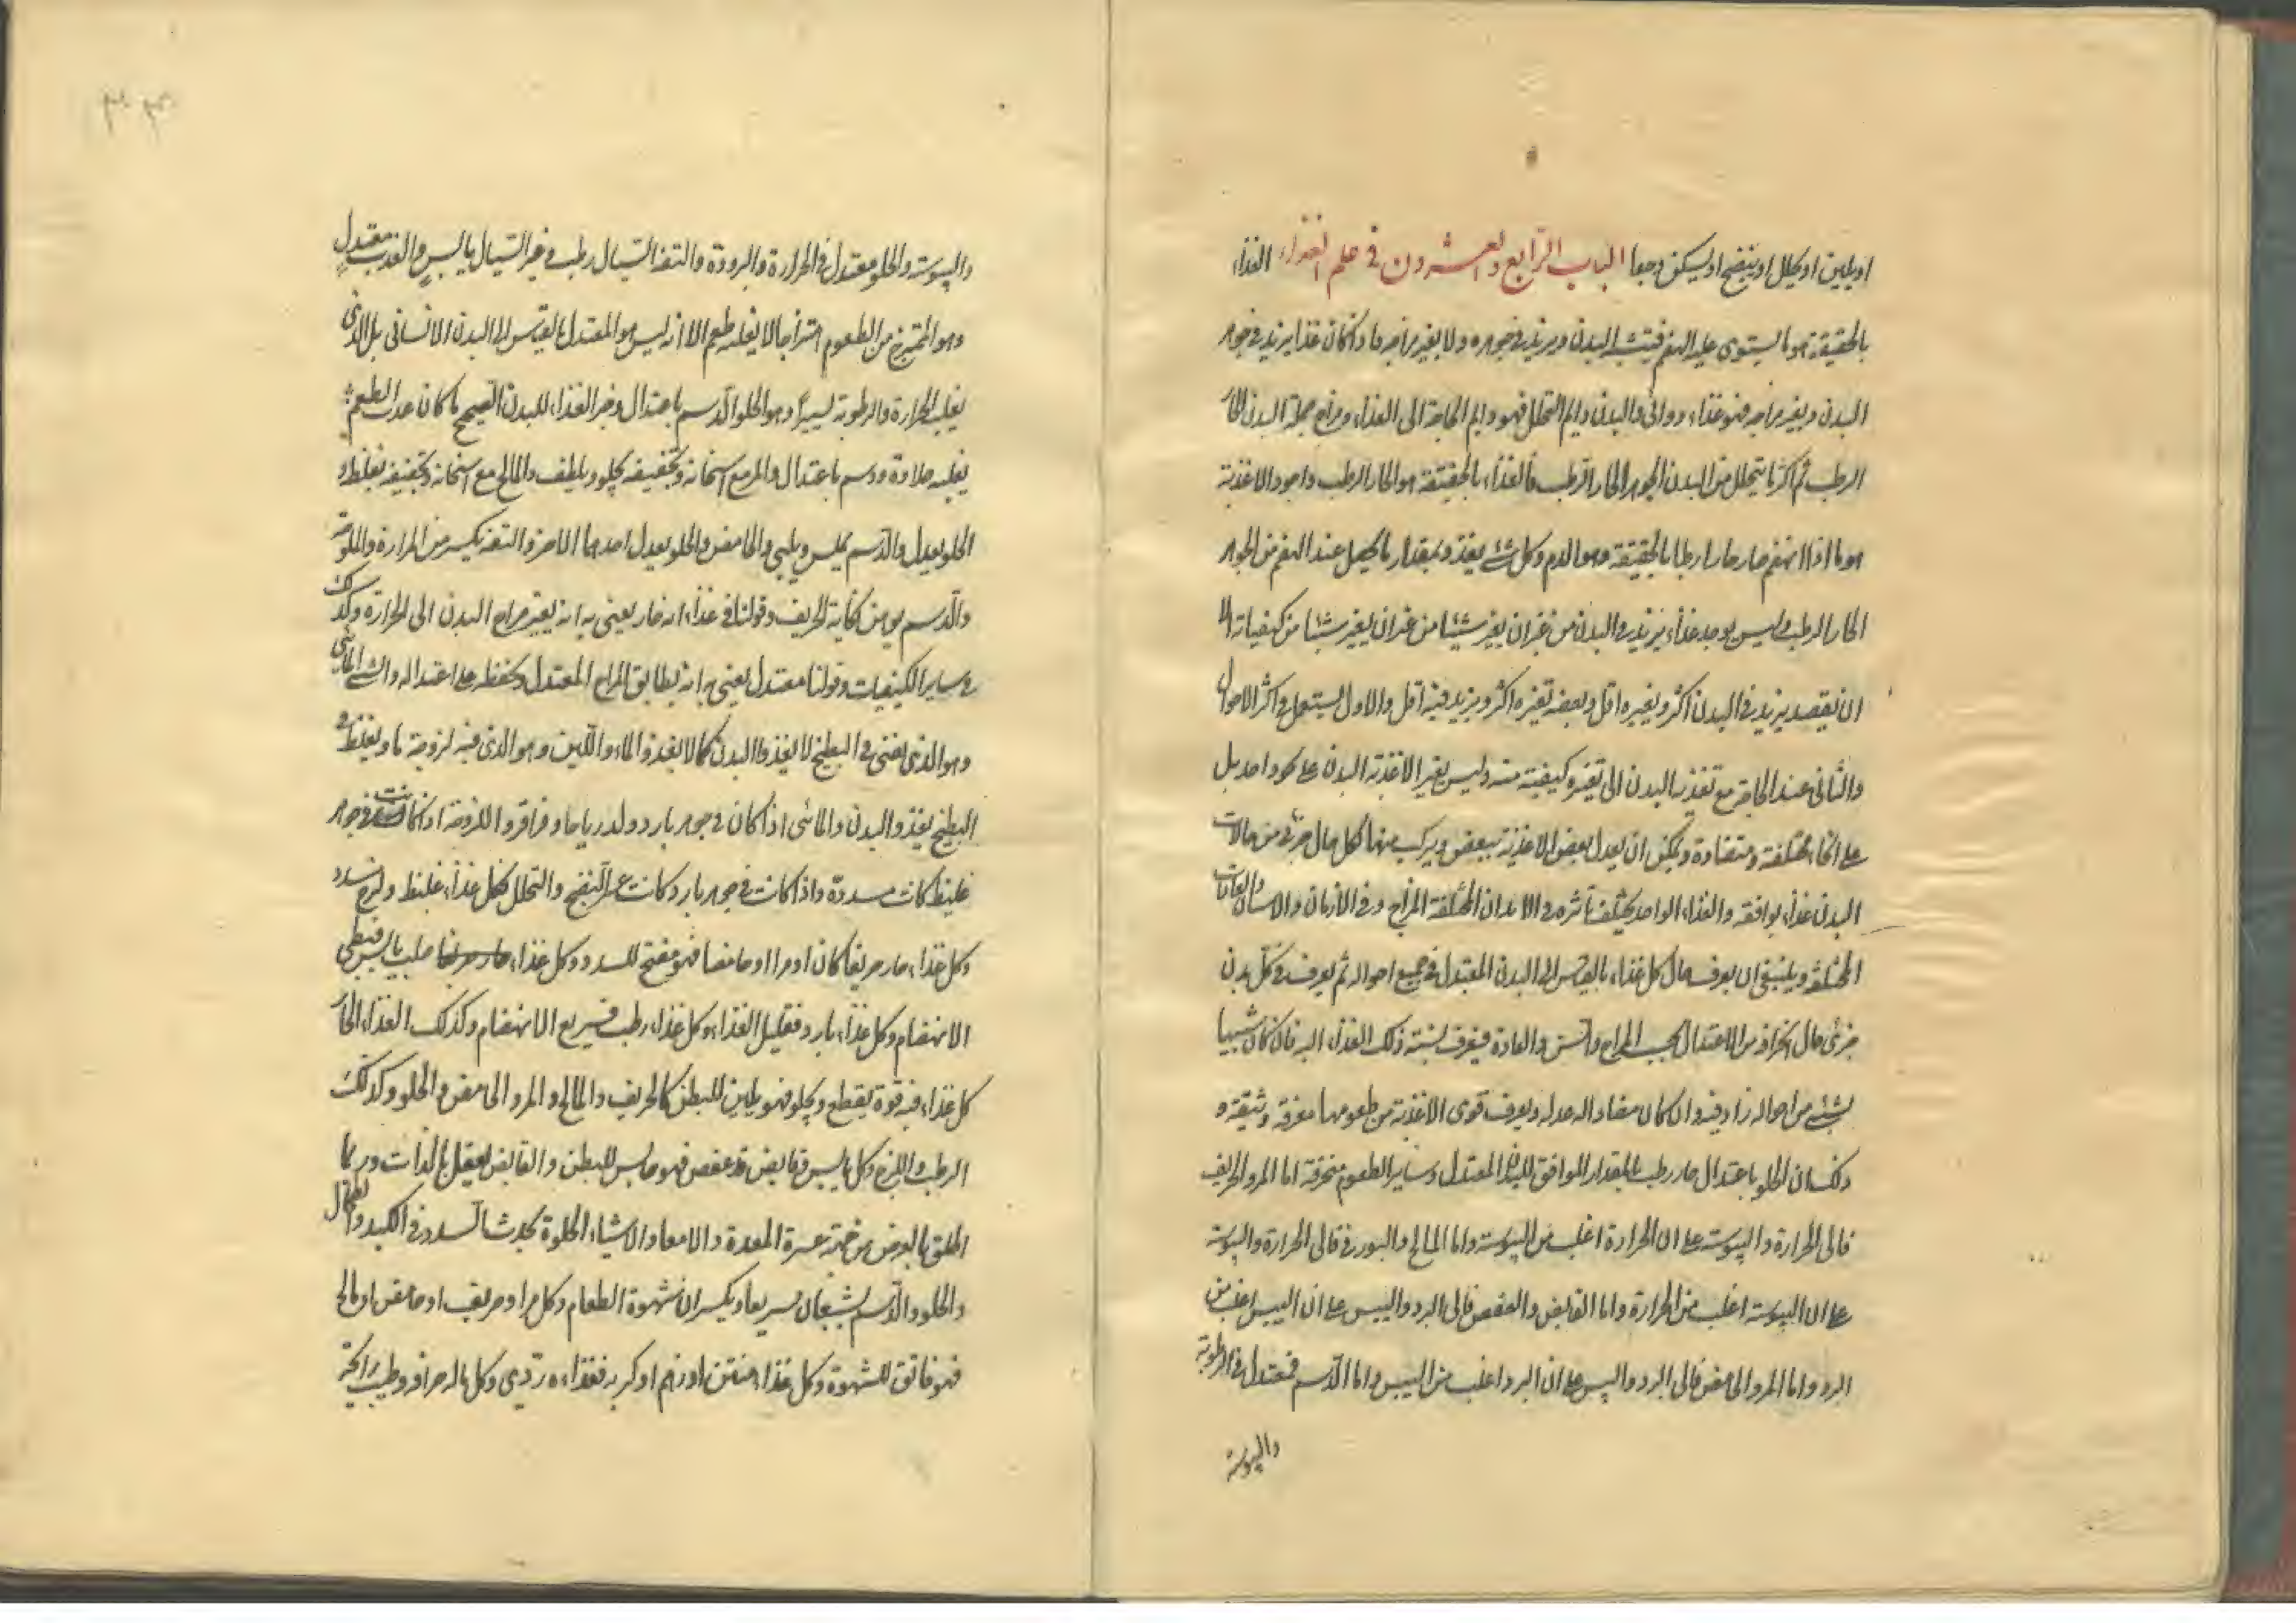 او يلين او يحلل او ينضج او يسكن وجعا الباب الرابع والعشرون في علم الغذاء الغذاء
بالحقيقة هو ما يستوى عليه الهضم فيتشبه بالبدن ويزيد في جوهره ولا يغير مزاجه فاذا كان غذا يزيد في جوهر
البدن ويغير مزاجه فهو غذاء دوائى والبدن دايم التحلل فهو دايم الحاجة الى الغذاء ومزاج جملة البدن الحار
الرطب ثم اكثر ما يتحلل من البدن الجوهر الحار الرطب فالغذاء بالحقيقة هو الحار الرطب واجود الاغذية
هو ما اذا انهضم صار حارا رطبا بالحقيقة وهو الدم وكل شئ يغذو بمقدار ما يحصل عند الهضم من الجوهر
الحار الرطب وليس يوجد غذاء يزيد في البدن من غير ان يغير شيئا من غير ان يغير شيئا من كيفياته الا
ان يقصد يزيد في البدن اكثر ويغيره اقل وبعضه تغيره اكثر ويزيد فيه اقل والاول يستعمل في اكثر الاحوال
والثانى عند الحاجة مع تغذية البدن الى تغيير كيفيته منه وليس يغير الاغذية البدن على نحو واحد بل
على انحاء مختلفة ومتضادة ويمكن ان يعدل بعض الاغذية ببعض ويركب منها لكل حال جزئ من حالات
البدن غذاء يوافقه والغذاء الواحد يختلف تأثيره في الابدان المختلفة المزاج وفي الازمان والاسنان والعادات
المختلفة وينبغى ان يعرف حال كل غذاء بالقياس الى البدن المعتدل في جميع احواله ثم يعرف في كل بدن
جزئى حال انحرافه من الاعتدال بحسب المزاج والسن والعادة فيعرف نسبة ذلك الغذاء اليه فان كان شبيها
بشئ من احواله زاد فيه وان كان مضادا له عدله ويعرف قوى الاغذية من طعومها معرفة وثيقة و
ذلك ان الحلو باعتدال حار رطب بالمقدار الموافق للبدن المعتدل وساير الطعوم منحرفة اما المر والحريف
فالى الحرارة واليبوسة على ان الحرارة اغلب من اليبوسة واما المالح والبورقى فالى الحرارة واليبوسة
على ان اليبوسة اغلب من الحرارة واما القابض والعفص فالى البرد واليبس على ان اليبس اغلب من
البرد واما المر والحامض فالى البرد واليبس على ان البرد اغلب من اليبس واما الدسم فمعتدل في الرطوبة
واليبوسة
واليبوسة والحلو معتدل في الحرارة والبرودة والتفه السيال رطب وغير السيال يابس والعذب معتدل
وهو الممتزج من الطعوم امتزاجا لا يغلبه طعم الا انه ليس هو المعتدل بالقياس الى البدن الانسانى بل الذى
يغلبه الحرارة والرطوبة يسيرا وهو الحلو الدسم باعتدال وخير الغذاء للبدن الصحيح ما كان عذب الطعم
يغلبه حلاوة ودسم باعتدال والمر مع اسخانه وتجفيفه يجلو ويلطف والمالح مع اسخانه وتجفيفه يغلظ و
الحلو يعدل والدسم يملس ويلين والحامض والحلو يعدل احدهما الاخر والتفه يكسر من المرارة والملوحة
والدسم يوهن نكاية الحريف وقولنا في غذاء انه حار يعنى به انه يغير مزاج البدن الى الحرارة وكذلك
في ساير الكيفيات وقولنا معتدل يعنى به انه يطابق المزاج المعتدل ويحفظه على اعتداله والشئ المائى
وهو الذى يعنى في البطيخ لا يغذو البدن كما لا يغذو الماء واللبن وهو الذى فيه لزوجة ما ويغلظ في
البطيخ يغذو البدن والمائى اذا كان في جوهر بارد ولد رياحا وقراقر واللزوجة اذا كانت في جوهر
غليظ كانت مسددة واذا كانت في جوهر بارد كانت عسر النضج والتحلل فكل غذاء غليظ ولزج مسدد
وكل غذاء حار حريفا كان او مرا او حامضا فهو مفتح للسدد وكل غذاء صلب يابس فبطى
الانهضام وكل غذاء بارد فقليل الغذاء وكل غذاء رطب فسريع الانهضام وكذلك الغذاء الحار
كل غذاء فيه قوة يقطع ويجلو فهو يلين للبطن كالحريف والمالح والمر والحامض والحلو وكذلك
الرطب واللزج وكل يابس وقابض قد عفص فهو حابس للبطن والقابض يعقل بالذات وربما
اطلق بالعرض من جهة عسرة المعدة والامعا والاشياء الحلوة يحدث السدد في الكبد والطحال
والحلو والدسم يشبعان سريعا ويكسران شهوة الطعام وكل مر او حريف او حامض او مالح
فهو فاتق للشهوة وكل غذاء منتن او زهم او كريه فغذاءه ردى وكل ماله حرافه وطيب رائحة